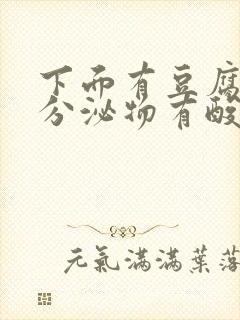 下面有豆腐
分泌物有酸
元氣滿滿葉落